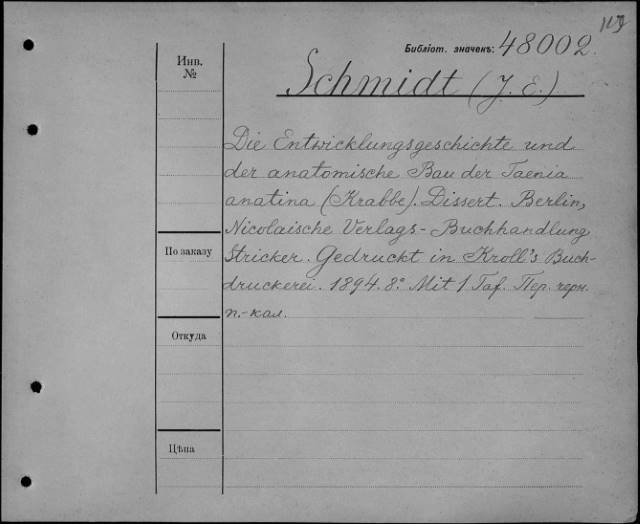 Библіот. значекъ: 48002.
Инв.
№
Schmidt (J. E.)
Die Entwicklungsgeschichte und
der anatomische Bau der Taenia
anatina (Krabbe). Dissert. Berlin,
Nicolaische Verlags-Buchhandlung
Stricker. Gedruckt in Kroll's Buch-
druckerei. 1894. 8.° Mit 1 Taf. Пер. черн.
п.-кал.
По заказу
Откуда
Цѣна